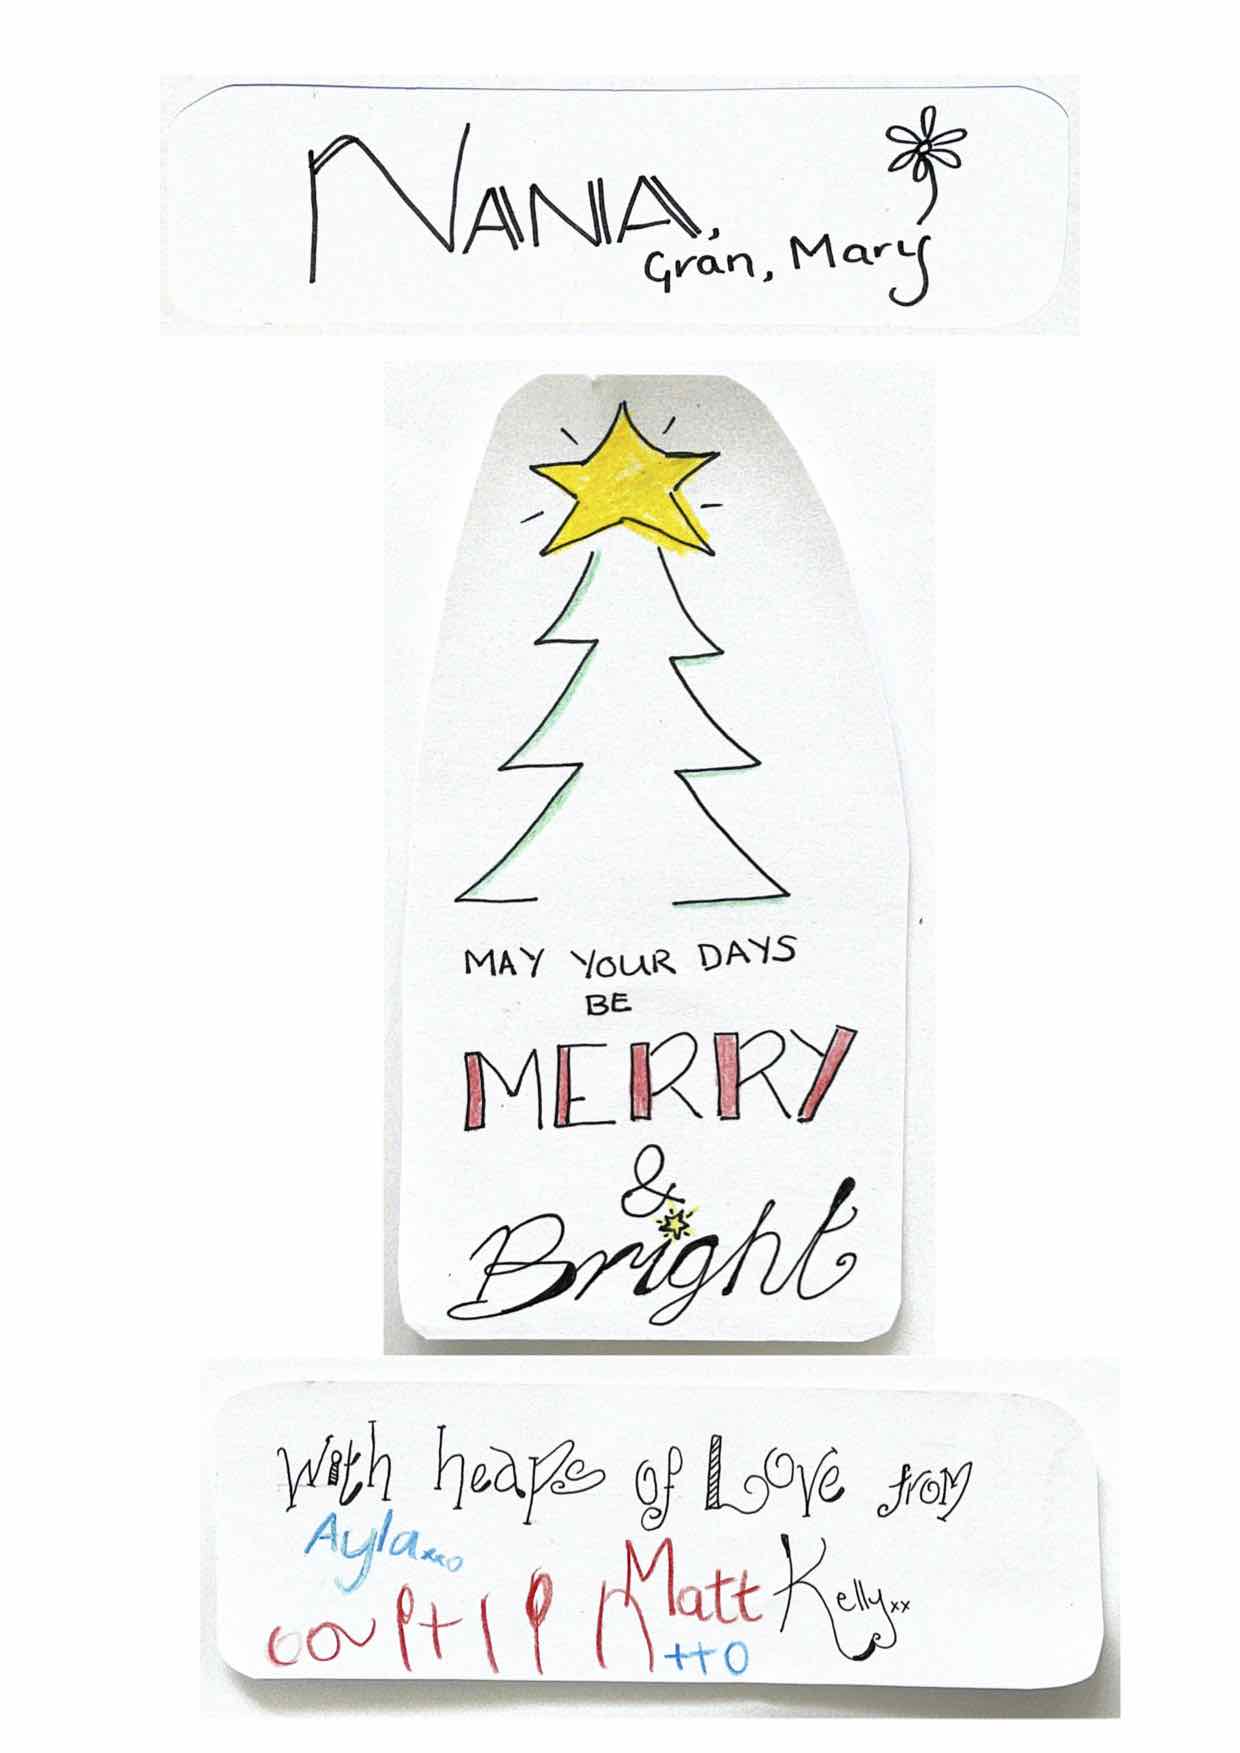 NANA,
Gran, Mary
MAY YOUR DAYS
BE
MERRY
&
Bright
With heaps of Love from
Ayla xxo
Matt Kelly xx